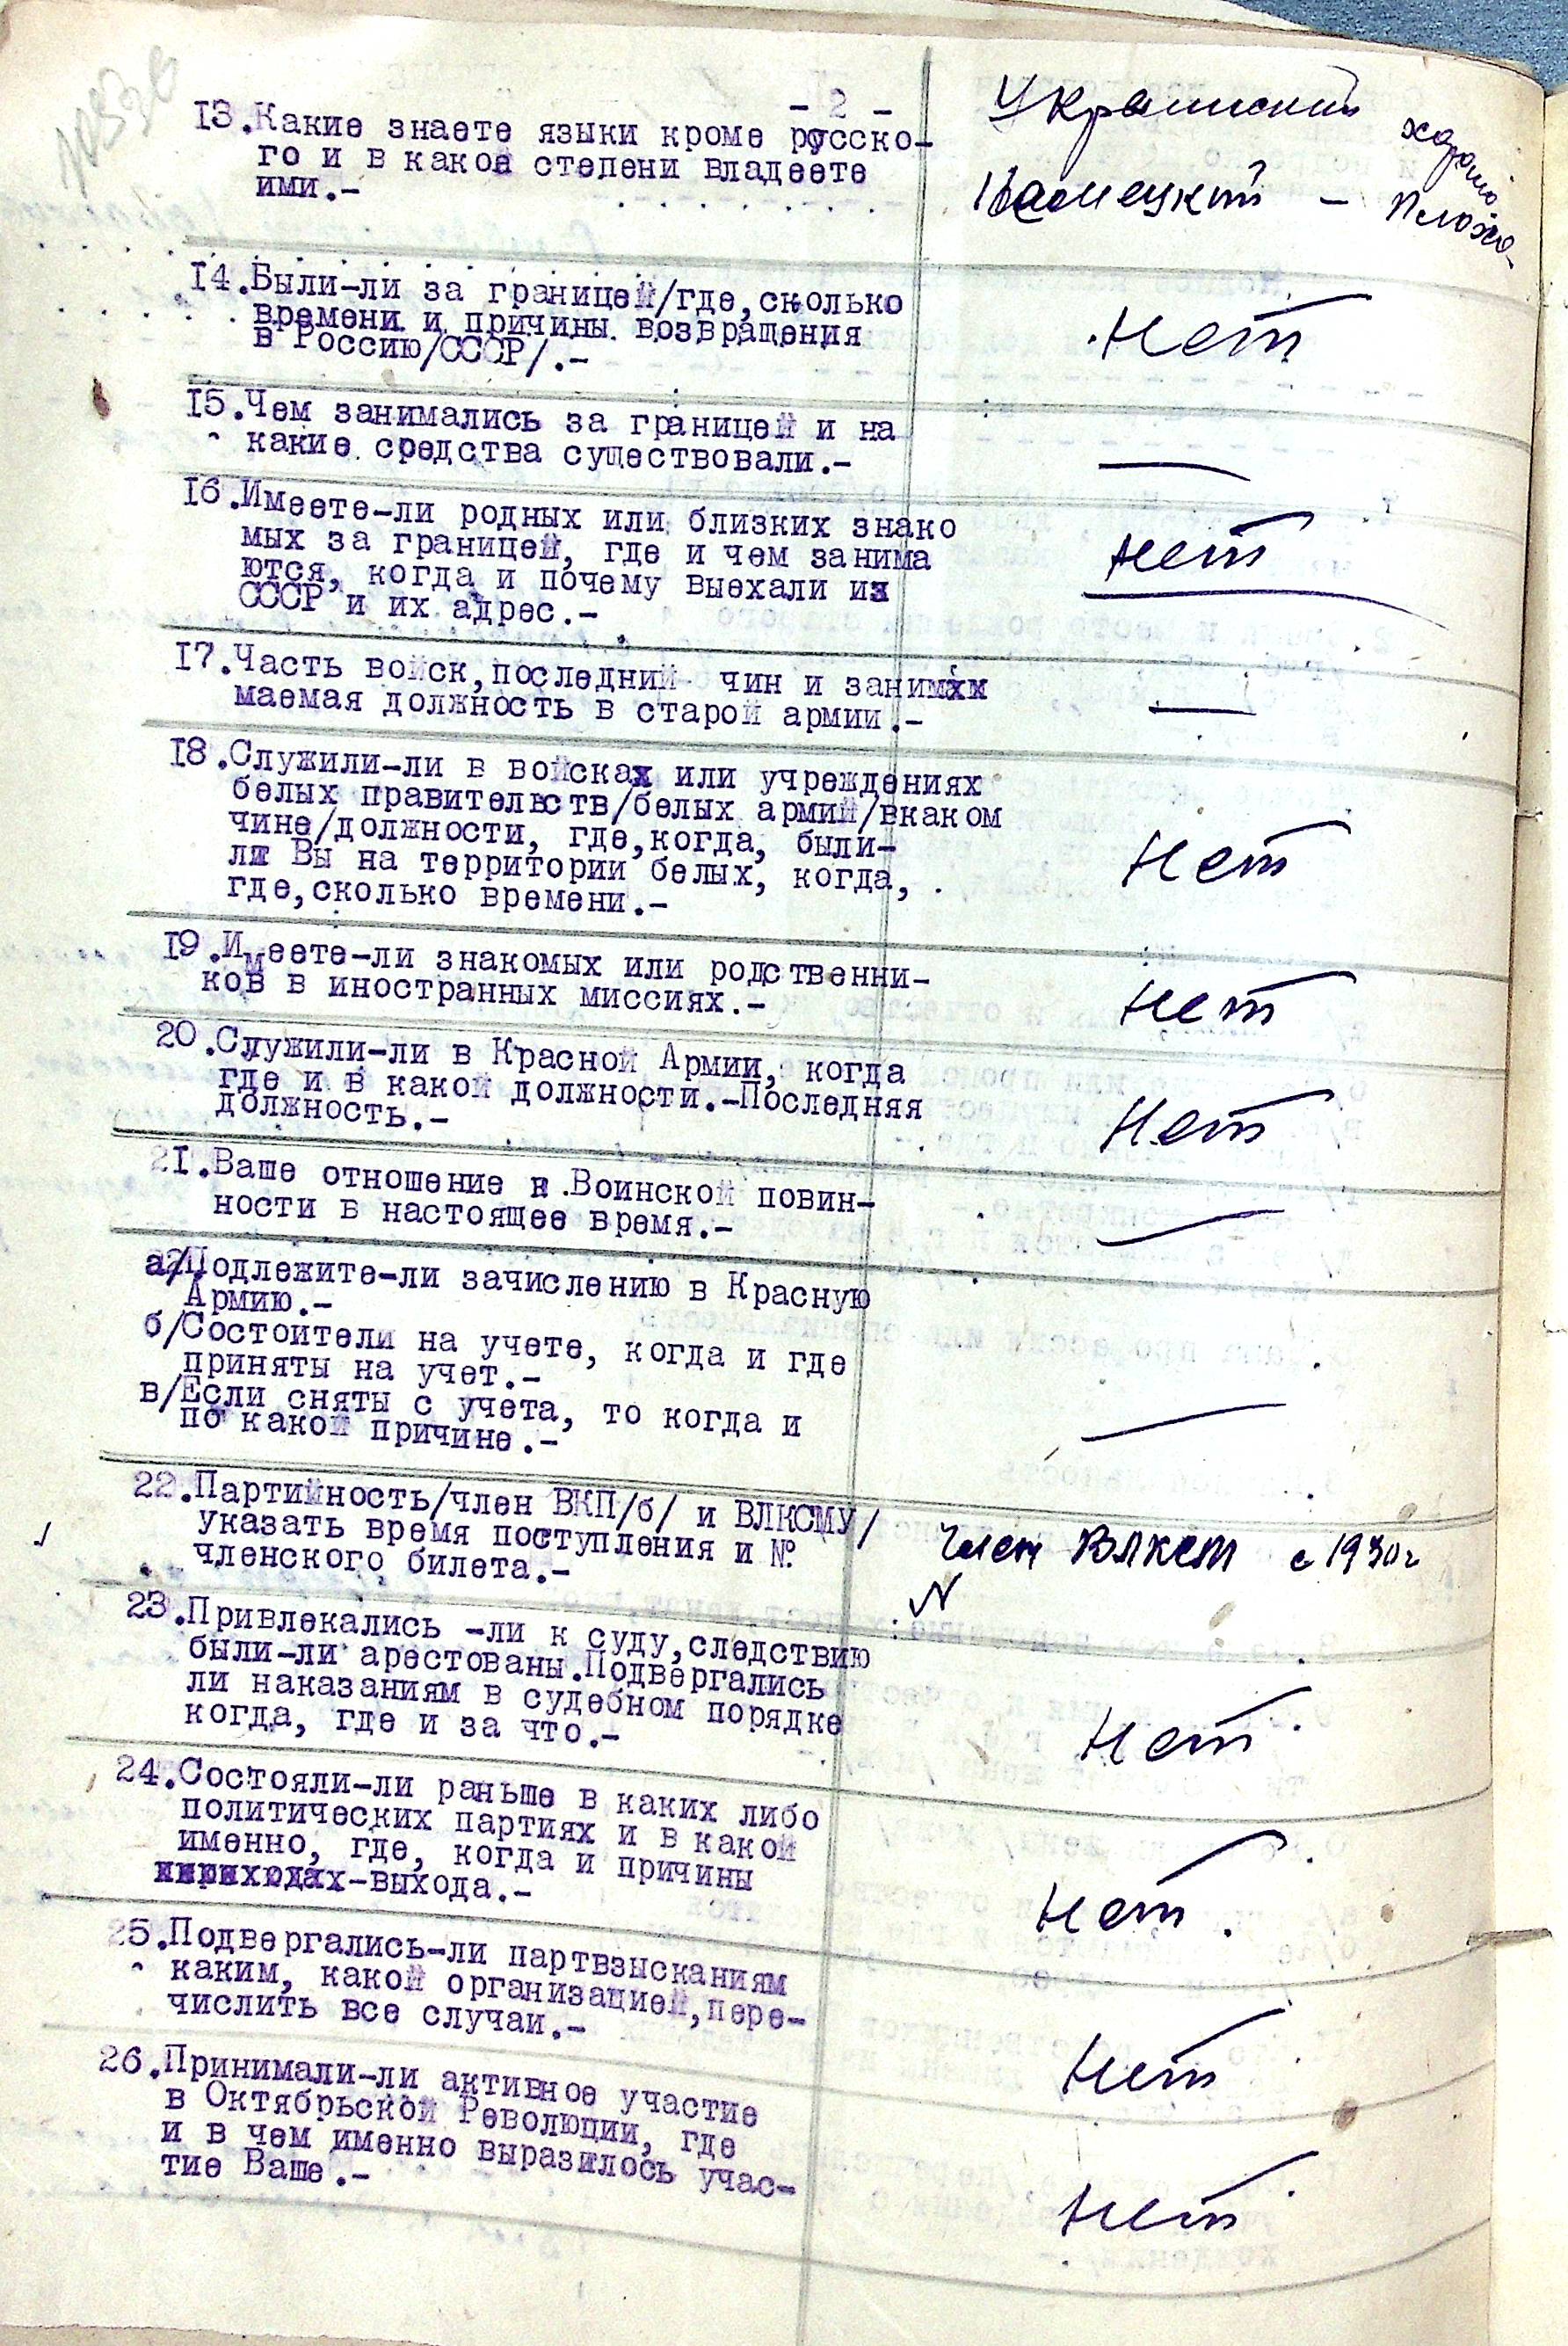 - 2 -
13.Какие знаете языки кроме русско-
го и в какой степени владеете
ими.-
Украинский хорошо
Немецкий - плохо-
14.Были-ли за границей/где,сколько
времени и причины возвращения
в Россию/СССР/.-
Нет
15.Чем занимались за границей и на
какие средства существовали.-
16.Имеете-ли родных или близких знако
мых за границей, где и чем занима
ются, когда и почему выехали из
СССР и их адрес.-
Нет
17.Часть войск,последний чин и занимхх
маемая должность в старой армии.-
18.Служили-ли в войсках или учреждениях
белых правительств/белых армий/вкаком
чине/должности, где,когда, были-
ли Вы на территории белых, когда,
где,сколько времени.-
Нет
19.Имеете-ли знакомых или родственни-
ков в иностранных миссиях.-
Нет
20.Служили-ли в Красной Армии, когда
где и в какой должности.-Последняя
должность.-
Нет
21.Ваше отношение к Воинской повин-
ности в настоящее время.-
а/Подлежите-ли зачислению в Красную
Армию.-
б/Состоители на учете, когда и где
приняты на учет.-
в/Если сняты с учета, то когда и
по какой причине.-
22.Партийность/член ВКП/б/ и ВЛКСМУ/
указать время поступления и №
членского билета.-
Член ВЛКСМ с 1930 г
N
23.Привлекались -ли к суду,следствию
были-ли арестованы.Подвергались
ли наказаниям в судебном порядке
когда, где и за что.-
Нет
24.Состояли-ли раньше в каких либо
политических партиях и в какой
именно, где, когда и причины
-выхода.-
Нет.
25.Подвергались-ли партвзысканиям
каким, какой организацией,пере-
числить все случаи.-
Нет
26.Принимали-ли активное участие
в Октябрьской Революции, где
и в чем именно выразилось учас-
тие Ваше.-
Нет